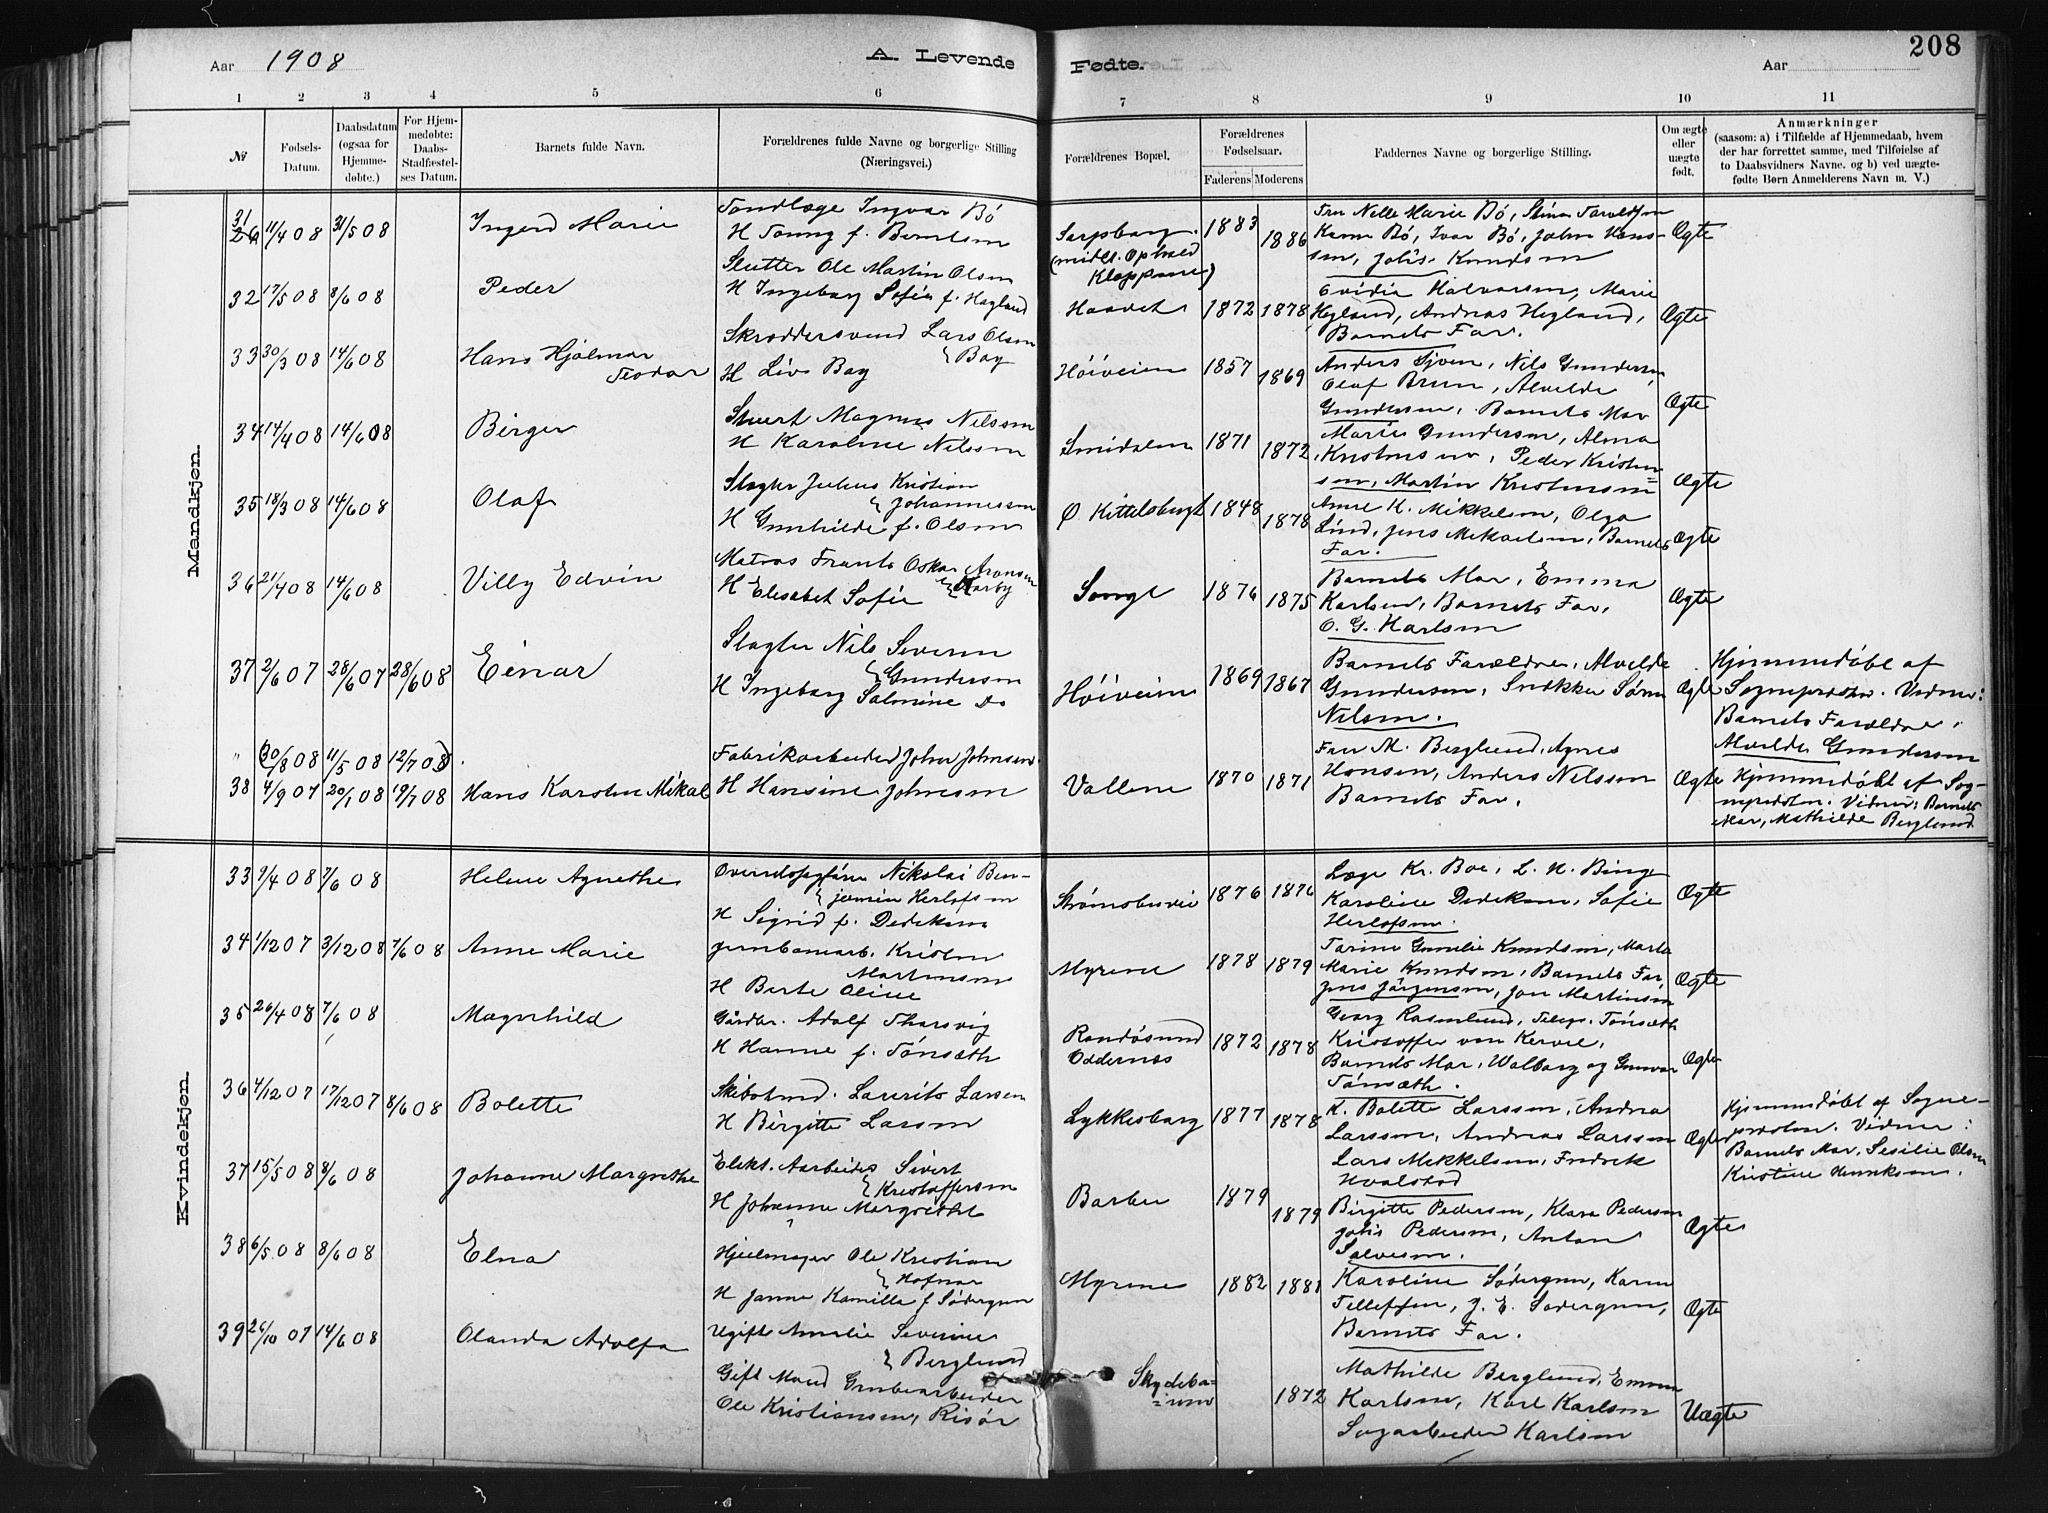 Aar 1908
A. Levende Fødte.
Aar
208
1 2 3 4 5 6 7 8 9 10 11
№
Fødsels-
Datum.
Daabsdatum
(ogsaa for
Hjemme-
døbte.)
For Hjem-
medøbte:
Daabs-
Stadfæstel-
ses Datum.
Barnets fulde Navn.
Forældrenes fulde Navne og borgerlige Stilling
(Næringsvei.)
Forældrenes Bopæl.
Forældrenes
Fødselsaar.
Faderens Moderens
Faddernes Navne og borgerlige Stilling.
Om ægte
eller
uægte
født.
Anmærkninger
(saasom: a) i Tilfælde af Hjemmedaab, hvem
der har forrettet samme, med Tilføielse af
to Daabsvidners Navne, og b) ved uægte-
fødte Børn Anmelderens Navn m. V.)
Mandkjøn.
31 11/4 08 31/5 08
Ingerd Marie
Tandlæge Ingvar Bö
H Tonny f. Berntsen
Sarpsborg.
(midlt. Ophold
Kloppene)
1883 1886
Fru Nelle Marie Bö, Stina
Bö, Ivar Bö, John Hans-
sen, Johs. Knudsen
Ægte
32 17/5 08 8/6 08
Peder
Slutter Ole Martin Olsen
H Ingeborg Sofie f. Hegland
Haavet
1872 1878
Ovidia Halvorsen, Marie
Hegland, Andreas Hegland,
Barnets Far.
Ægte
33 30/3 08 14/6 08
Hans Hjalmar
Teodor
Skræddersvend Lars Olsen
Bay
H Liva Bay
Höiveien
1857 1869
Anders Sjöen, Nils Gundersen
Olaf Bruun, Alvilde
Gundersen, Barnets Mor
Ægte
34 14/4 08 14/6 08
Birger
Stuert Magnus Nilssen
H Karoline Nilssen
Smidalen
1871 1872
Marie Gundersen, Alma
Kristensen, Peder Kristen
sen, Martin Kristensen
Ægte
35 18/3 08 14/6 08
Olaf
Slagter Julius Kristian
Johannessen
H Gunhilde f. Olsen
Ø. Kittelsbugt
1848 1878
Anne K. Mikkelsen, Olga
Lind, Jens Mikaelsen, Barnets
Far.
Ægte
36 21/4 08 14/6 08
Villy Edvin
Matros Frants Oskar Aronsen
H Elisabet Sofie
Songe
1876 1875
Barnets Mor, Emma
Karlsen, Barnets Far,
O. G. Karlsen
Ægte
37 2/6 07 28/6 07 28/6 08
Einar
Slagter Nils Severin
Gundersen
H Ingeborg Salmine Do
Höiveien
1869 1867
Barnets Forældre, Alvilde
Gundersen, Snekker Sören
Nilsen.
Ægte
Hjemmedöbt af
Sognepresten. Vidner:
Barnets Forældre,
Alvilde Gundersen
" (30/8 08 11/5 08 12/7 08)
38 4/9 07 20/1 08 19/7 08
Hans Karsten Mikal
Fabrikarbeider John Johnsen
H Hansine Johnsen
Vollene
1870 1871
Fru M. Berglund, Agnes
Hansen, Anders Nilssen
Barnets Far.
Ægte
Hjemmedöbt af Sog-
nepresten. Vidner: Barnets
Mor, Mathilde Berglund
Kvindekjøn.
33 9/4 08 7/6 08
Helene Agnethe
Overretssagförer Nikolai Ben-
jamin Herlofsen
H Sigrid f. Dedekam
Strömsbuveie
1876 1876
Læge Kr. Boe, L. N. Bing
Karoline Dedekam, Sofie
Herlofsen.
Ægte
34 1/12 07 3/12 08 7/6 08
Anne Marie
Jernbanearb. Kristen
Martinsen
H Berte Oline
Myrene
1878 1879
Tarine Gunelie Knudsen, Marta
Marie Knudsen, Barnets Far,
Jens Jörgensen, Jon Martinsen
Ægte
35 26/4 08 7/6 08
Magnhild
Gårdbr. Adolf Tharsvig
H Hanne f. Tönsæth
Randösund
Oddernæs
1872 1878
Georg Rasmlund, Telegr. Tönsæth
Kristoffer von Kervel,
Barnets Mor, Walborg og Gunvor
Tönsæth.
Ægte
36 4/12 07 17/12 07 8/6 08
Bolette
Skibstmd. Laurits Larsen
H Birgitte Larsen
Lykkesborg
1877 1878
K. Bolette Larssen, Andrea
Larssen, Andreas Larssen
Lars Mikkelsen, Fredrik
Hvalstad
Ægte
Hjemmedöbt af Sogne-
presten. Vidner:
Barnets Mor, Sesilie Olsen
Kristine Henriksen.
37 15/5 08 8/6 08
Johanne Margrethe
Elekt. Aarbeider Sivert
Kristoffersen
H Johanne Margrethe
Barbu
1879 1879
Birgitte Pedersen, Klara Pedersen
Johs Pedersen, Anton
Salvesen.
Ægte
38 6/5 08 8/6 08
Elna
Hjeelmager Ole Kristian
Hofnar
H Janne Kamilla f Södergren
Myrene
1882 1881
Karoline Södergren, Karen
Tellefsen, J. E. Södergren,
Barnets Far.
Ægte
39 26/10 07 14/6 08
Olanda Adolfa
Ugift Amalie Severine
Berglund
Gift Mand Grubearbeider
Ole Kristiansen, Risör
Skydeba-
nen
1872
Mathilde Berglund, Emma
Karlsen, Karl Karlsen
Sagarbeider Karlsen
Uægte